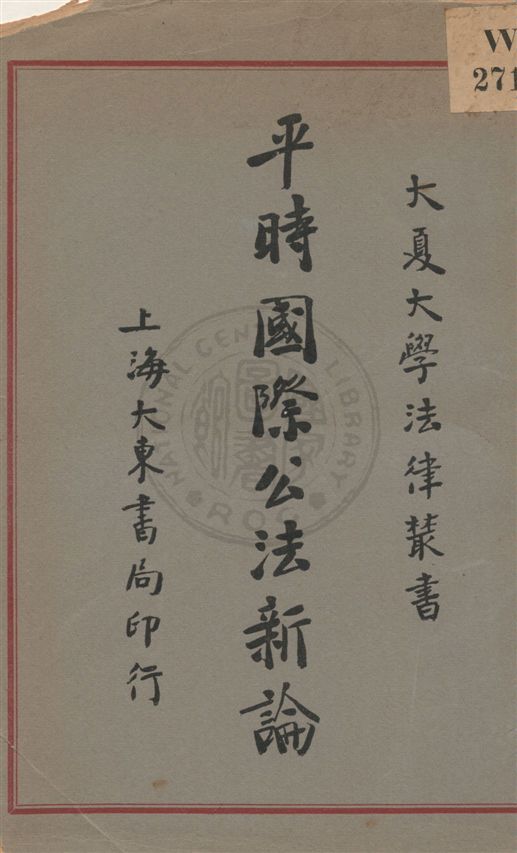 大夏大學法律叢書
平時國際公法新論
上海大東書局印行
W
271
NATIONAL CENTRAL LIBRARY
R.O.C.